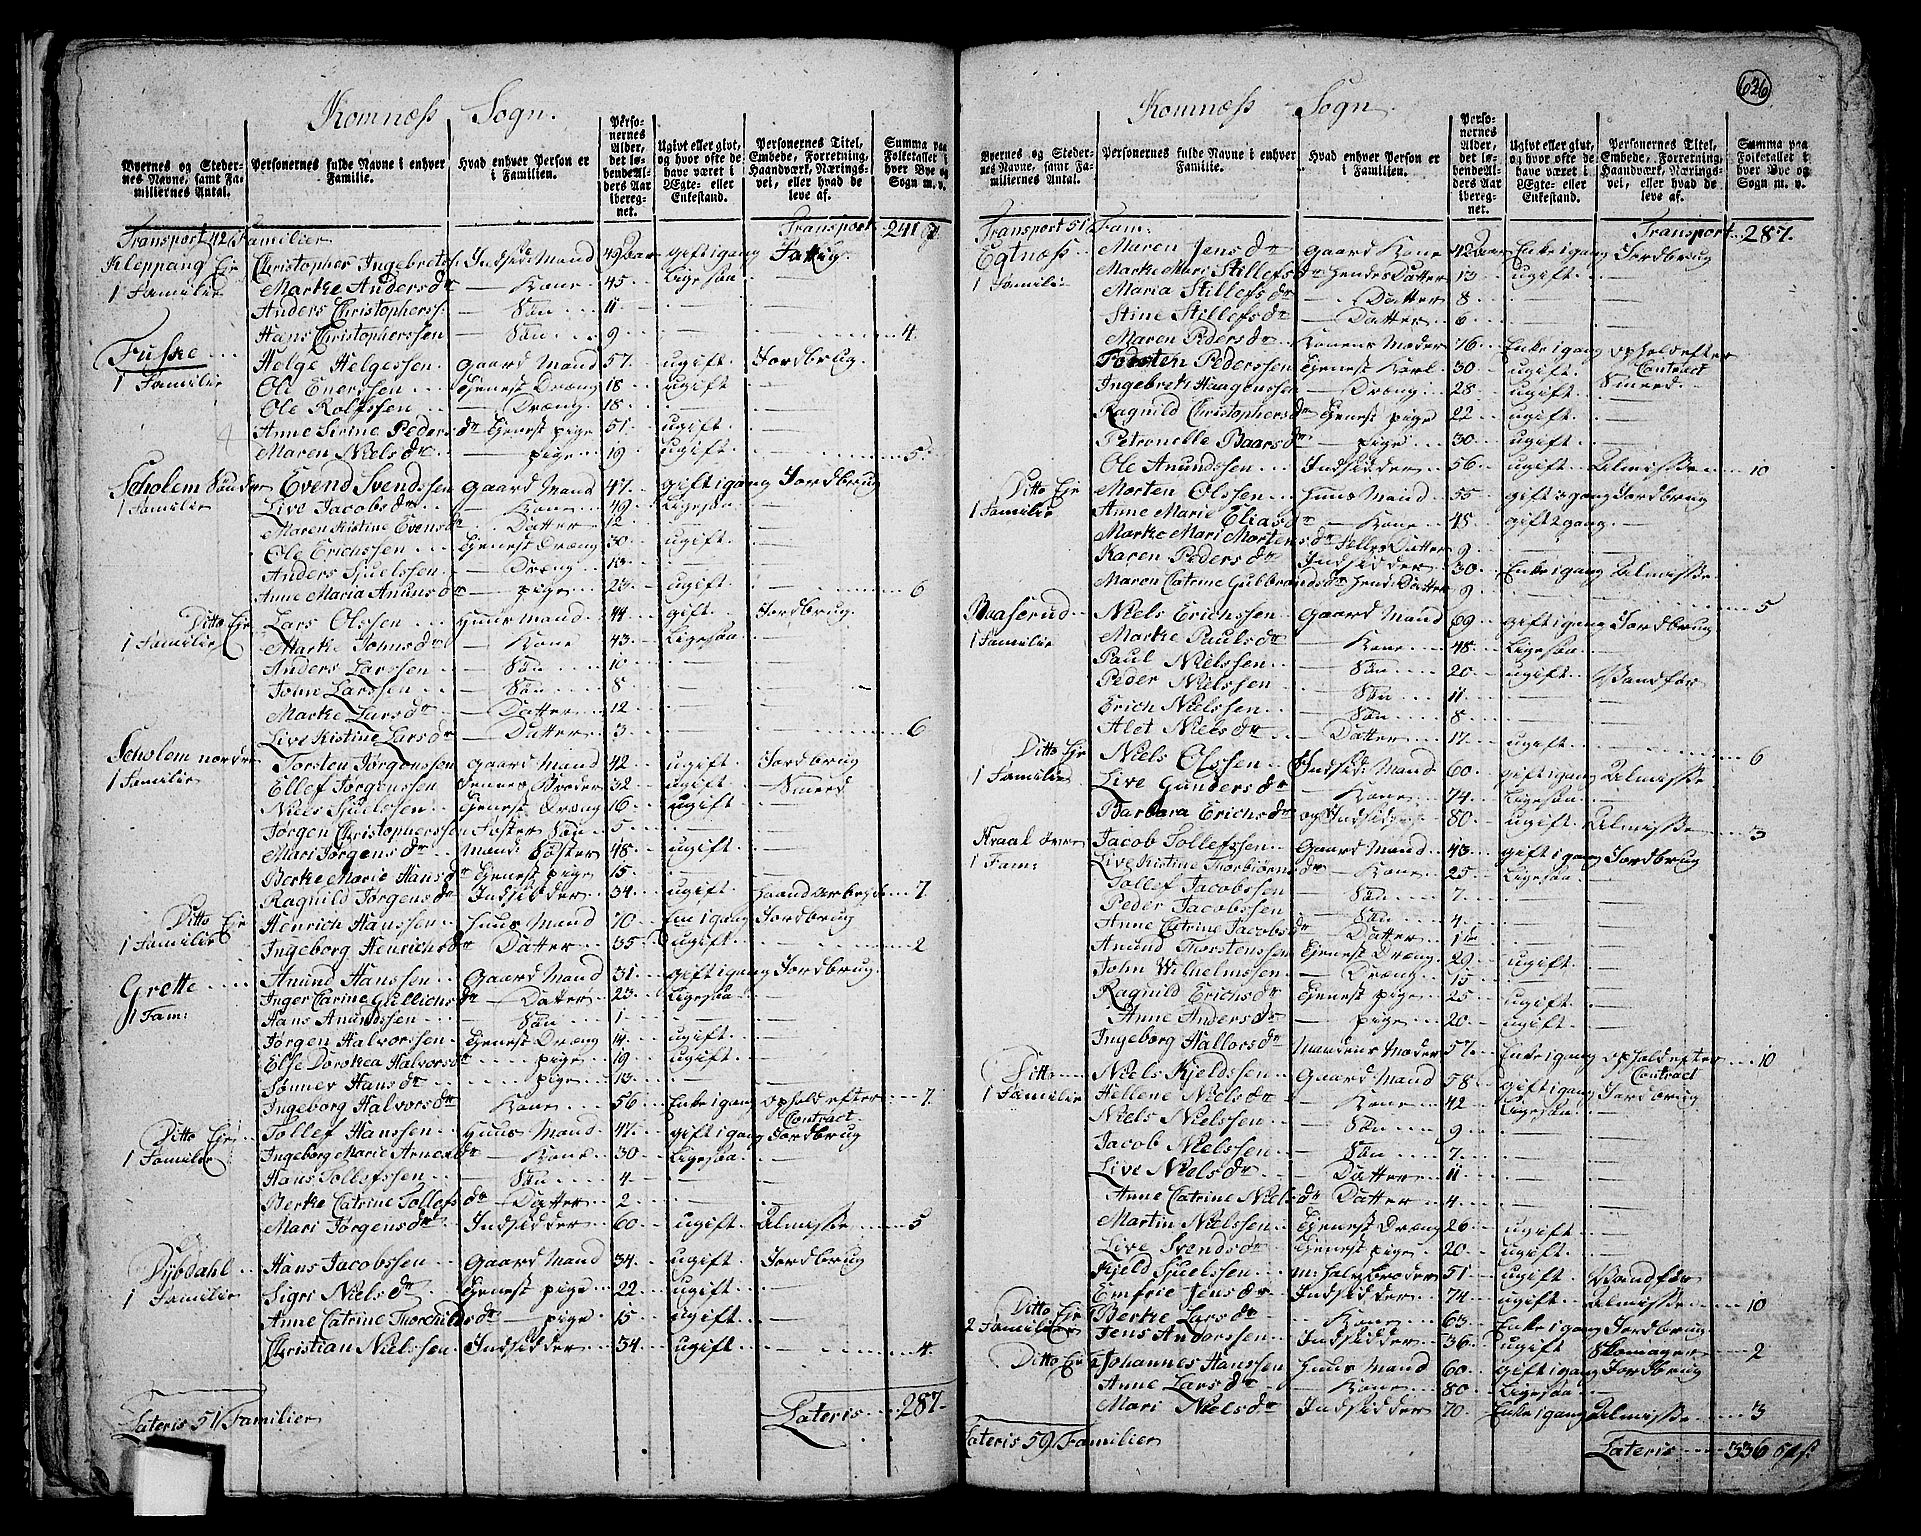 Komnæss Sogn.
Byernes og Stedernes Navne, samt Familiernes Antal.
Personernes fulde Navne i enhver Familie.
Hvad enhver Person er i Familien.
Personernes Alder, det løbende Alders Aar iberegnet.
Ugivt eller givt, og hvor ofte de have været i Ægte- eller Enkestand.
Personernes Titel, Embede, Forretning, Haandværk, Næringsvei, eller hvad de leve af.
Summa paa Folketallet i hver Bye og Sogn m. v.
Transport 42 Familier Transport 241
Kleppang Eje Christopher Ingebretss. Indsid: Mand 49 Aar gift 1 gang
1 Familie Marke Anders dr — Kone 45 Ligesaa —
Anders Christopherss. — Søn 11 — —
Hans Christopherssen — Søn 9 — — 4.
Fuske Helge Helgessen Gaard Mand 57. ugift Jordbrug
1 Familie Ole Enerssen Tjenest Dræng 18 ugift —
Ole Rolfssen — Dræng 18 — —
Anne Sirine Peders dr Tjenest pige 51. ugift —
Maren Niels dr — pige 19 ugift — 5.
Scholem Sønder Evend Svendssen Gaard Mand 47 gift 1 gang Jordbrug
1 Familie Live Jacobs dr — Kone 49 Ligesaa —
Maren Kistine Evens dr — Datter 12 — —
Ole Erichssen Tjenest Dræng 30 ugift —
Anders Sjuelssen — Dræng 13 — —
Anne Maria Anuns dr — pige 20 ugift — 6
Ditto Eje Lars Olssen Huus Mand 44 gift Jordbrug
1 Familie Marke Johns dr — Kone 43 Ligesaa —
Anders Larssen — Søn 10 — —
John Larssen — Søn 8 — —
Marke Lars dr — Datter 12 — —
Live Kistine Lars dr — Datter 3 — — 6
Scholem nordre Torsten Jørgenssen Gaard Mand 42 ugift Jordbrug
1 Familie Ellef Jørgenssen Sennes Broder 32 ugift Smed
Niels Sjuelssen Tjenest Dræng 16 ugift —
Jørgen Christopherssen Foster Søn 5 — —
Mari Jørgens dr Mand: Søster 48 ugift —
Berke Marie Hans dr Tjenest pige 15 — —
Ragnild Jørgens dr Indsidder 34 ugift Haandarbejde 7
Ditto Eje Henrich Hanssen Huus Mand 70 Em 1 gang Jordbrug
1 Familie Ingeborg Henrichs dr — Datter 35 ugift — 2
Grette Anund Hanssen Gaard Mand 31 gift 1 gang Jordbrug
1 Fam: Inger Carine Gullichs dr — Datter 23 Ligesaa —
Hans Anundssen — Søn 1 — —
Jørgen Halvorssen Tjenest Dræng 14 ugift —
Else Dorthea Halvors dr — pige 19 ugift —
Sønnev Hans dr pige 13 — —
Ingeborg Halvors dr — Kone 56 Enke 1 gang ophold efter Contract 7.
Ditto Eje Tollef Hanssen Huus Mand 47. gift 1 gang Jordbrug
1 Familie Ingeborg Marie Arnes dr — Kone 30 Ligesaa —
Hans Tollefssen — Søn 4 — —
Berke Catrine Tollefs dr — Datter 2 — —
Mari Jørgens dr Indsidder 60 ugift Almisse 5
Dybdahl Hans Jacobssen Gaard Mand 34. ugift Jordbrug
1 Familie Sigri Niels dr Tjenest pige 22 ugift —
Anne Catrine Thorchilds dr — pige 15 ugift —
Christian Nielssen Indsidder 34 ugift — 4.
Lateris 51 Familier Lateris 287.
626
Komnæss Sogn
Byernes og Stedernes Navne, samt Familiernes Antal.
Personernes fulde Navne i enhver Familie.
Hvad enhver Person er i Familien.
Personernes Alder, det løbende Alders Aar iberegnet.
Ugivt eller givt, og hvor ofte de have været i Ægte- eller Enkestand.
Personernes Titel, Embede, Forretning, Haandværk, Næringsvei, eller hvad de leve af.
Summa paa Folketallet i hver Bye og Sogn m. v.
Transport 51 Fam: Transport 287.
Egtnæss Maren Jens dr Gaard Kone 42 Aar Enke 1 gang Jordbrug
1 Familie Marke Mari Stillefs dr Hendes Datter 13 ugift —
Maria Stillefs dr — Datter 8 — —
Stine Stillefs dr — Datter 6 — —
Maren Peders dr Konens Moder 76 Enke 1 gang ophold efter Contract
Torsten Pederssen Tjenest Karl 30 ugift
Ingebrek Haagenssen — Dræng 28 ugift Smed
Ragnild Christophers dr Tjenest pige 22 ugift —
Petronelle Baars dr — pige 30 ugift —
Ole Anundssen Indsidder 56 ugift Almisse 10
Ditto Eje Morten Olssen Huus Mand 55 gift 1 gang Jordbrug
1 Familie Anne Marie Elias dr — Kone 45 gift 2 gang —
Marke Mari Mortens dr Datter 9 — —
Karen Peders dr Indsidder 30 Enke 1 gang Almisse
Maren Catrine Gulbrands dr Hend: Datter 9 — — 5
Baaserud Niels Erichssen Gaard Mand 69 gift 1 gang Jordbrug
1 Familie Marke Pauls dr — Kone 48 Ligesaa —
Paul Nielssen — Søn 20 ugift
Peder Nielssen — Søn 11 — —
Erich Nielssen — Søn 8 — —
Alet Niels dr — Datter 17 ugift —
Ditto Eje Niels Olssen Indsid: Mand 60 gift 1 gang Almisse 6
1 Familie Live Gunders dr — Kone 74 Ligesaa —
Barbara Erichs dr og Indsidder 80 ugift Almisse 3
Kraal øvre Jacob Tollefssen Gaard Mand 43 gift 1 gang Jordbrug
1 Fam: Live Kistine Thorbiørns dr — Kone 25 Ligesaa —
Tollef Jacobssen — Søn 7 — —
Peder Jacobssen — Søn 4 — —
Anne Catrine Jacobs dr — Datter — —
Anund Thorstenssen Tjenest Dræng 29 ugift —
John Wilhelmssen — Dræng 15 — —
Ragnild Erichs dr Tjenest pige 25 ugift —
Anne Anders dr — pige 20 ugift —
Ingeborg Hallors dr Mandens Moder 57. Enke 1 gang ophold efter Contract 10
Ditto Niels Kjeldssen Gaard Mand 58 gift 1 gang Jordbrug
1 Familie Hellene Niels dr — Kone 42 Ligesaa —
Niels Nielssen — Søn 9 — —
Jacob Nielssen — Søn 7 — —
Live Niels dr — Datter 11 — —
Anne Catrine Niels dr Datter 4 — —
Martin Nielssen Tjenest Dræng 26 ugift —
Live Svends dr Tjenest pige 20 ugift —
Kjeld Sjuelssen m: halv broder 51 ugift
Emfrie Jens dr Indsidder 74 ugift Almisse 10
Ditto Eje Berke Lars dr — Kone 63 Enke 1 gang Jordbrug
2 Familier Jens Anderssen Indsidder 36 ugift Skomager 2
Ditto Eje Johannes Hanssen Huus Mand 60 gift 1 gang Jordbrug
Anne Lars dr — Kone 80 Ligesaa —
Mari Niels dr Indsidder 70 Enke 1 gang Almisse 3
Lateris 59 Familier Lateris 336